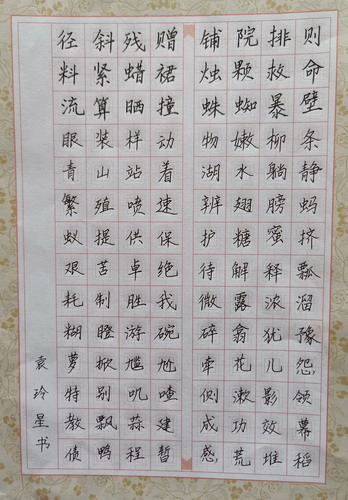 径斜残赠铺院排则
料紧蜡裙烛颗救命
流算晒撞蛛蜘暴壁
眼装样动物嫩柳条
青山站着湖水躺静
繁殖喷速辨翅膀蚂
蚁提供保护糖蜜挤
艰苦卓绝待解释瓢
耗制胜我微露浓溜
糊瞪游碗碎翕犹豫
萝掀尴尬牵花儿怨
特别叽喳侧漱影领
教飘蒜建成功效幕
债鸭程暂感荒堆稻
袁玲星书